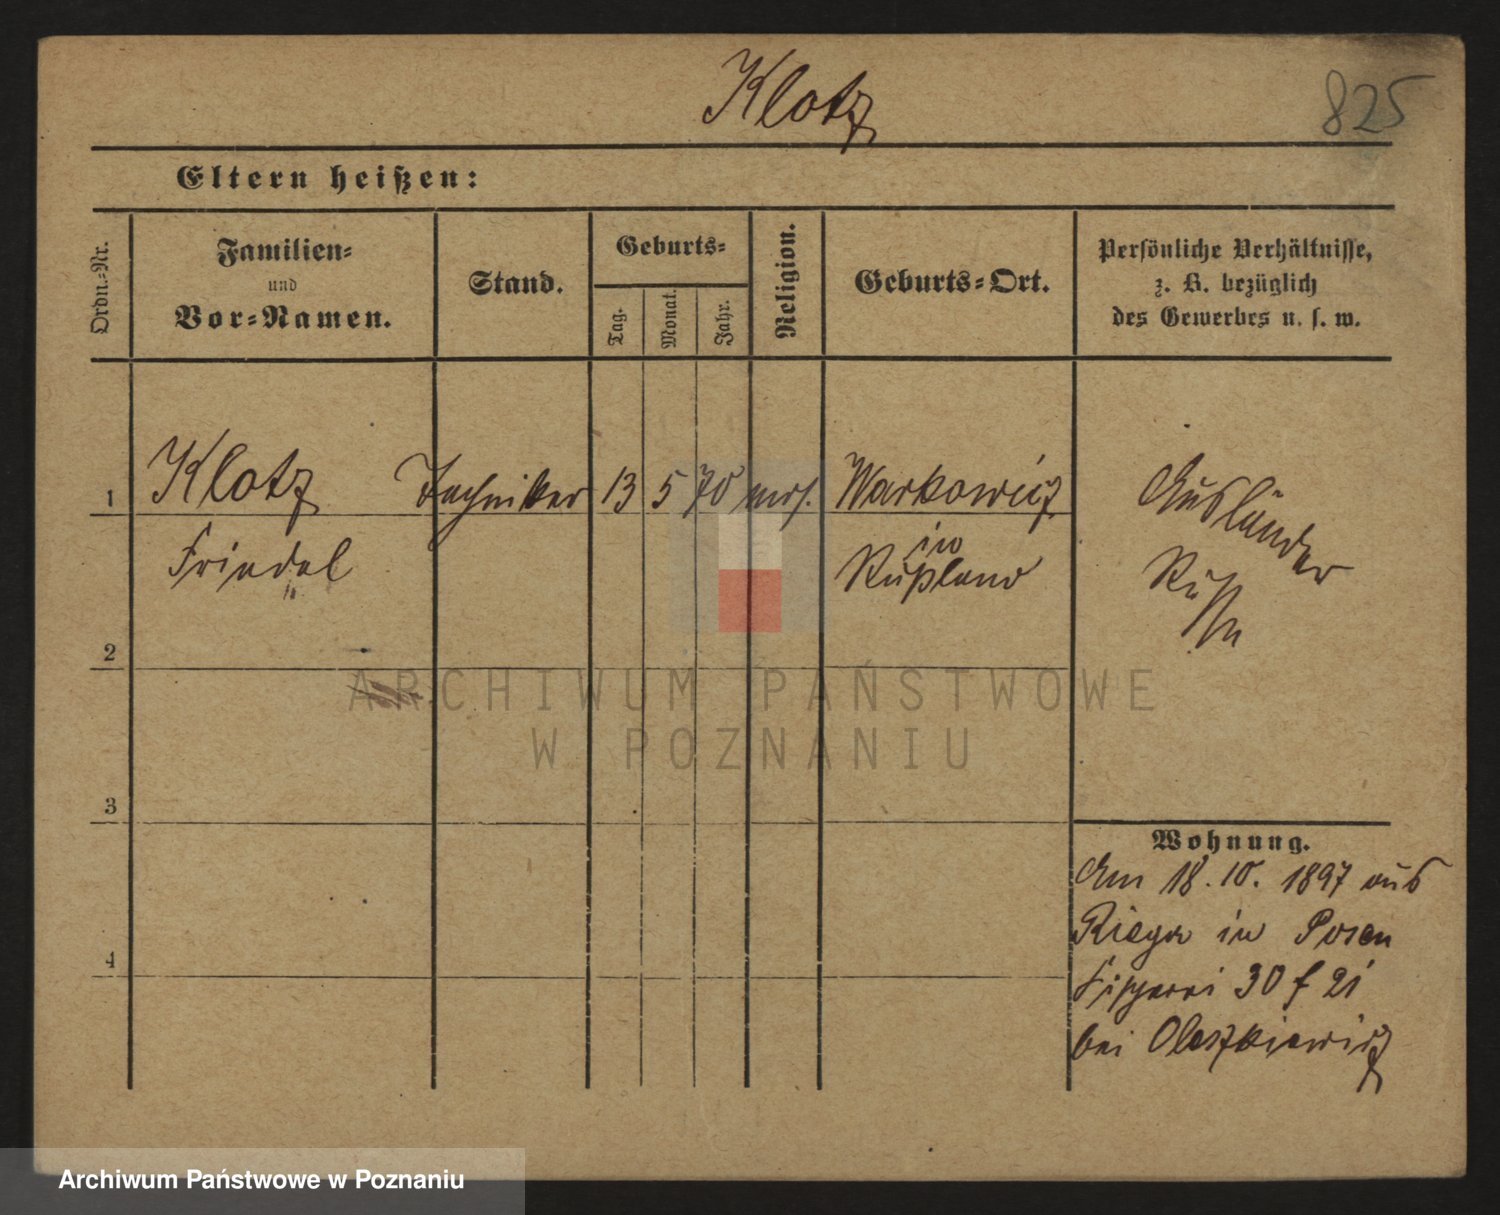 Klotz
825
Eltern heißen:
Ordn.-Nr.
Familien-
und
Vor-Namen.
Stand.
Geburts-
Tag.
Monat.
Jahr.
Religion.
Geburts-Ort.
Persönliche Verhältnisse,
z. B. bezüglich
des Gewerbes u. s. w.
1 Klotz Techniker 13 5 70 mos. Warkowicz Ausländer
Friedel in
Rußland Russe
2
3
4
Wohnung.
Am 18.10. 1897 aus
Riega in Posen
Fischerei 30 f 21
bei Oleszkiewicz
ARCHIWUM PAŃSTWOWE
W POZNANIU
Archiwum Państwowe w Poznaniu